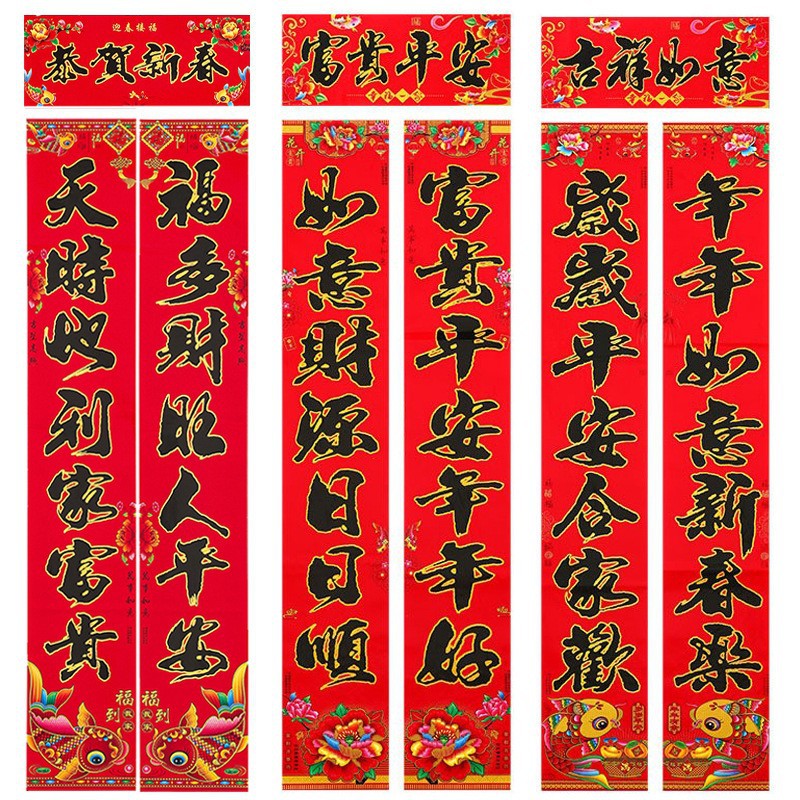 迎春接福
恭賀新春
福多財旺人平安
天時地利家富貴
福到
福到
富貴平安
富貴平安年年好
如意財源日日順
花开
花开
吉祥如意
年年如意新春樂
歲歲平安合家歡